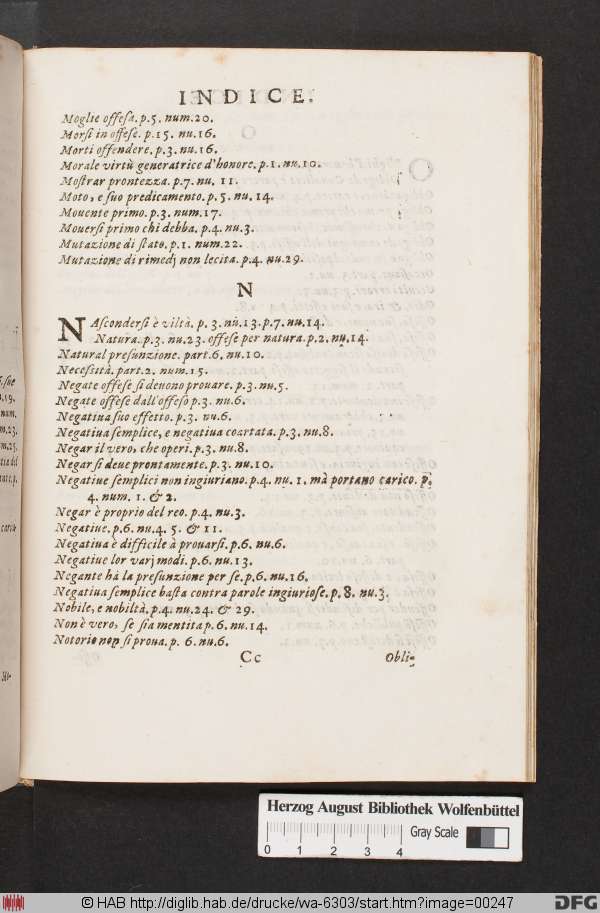 INDICE.
Moglie offeſa. p. 5. num. 20.
Morſi in offeſe. p. 15. nu. 16.
Morti offendere. p. 3. nu. 16.
Morale virtù generatrice d'honore. p. 1. nu. 10.
Moſtrar prontezza. p. 7. nu. 11.
Moto, e ſuo predicamento. p. 5. nu. 14.
Mouente primo. p. 3. num. 17.
Mouerſi primo chi debba. p. 4. nu. 3.
Mutazione di ſtato. p. 1. num. 22.
Mutazione di rimedj non lecita. p. 4. nu. 29.
N
NAſconderſi è viltà. p. 3. nu. 13. p. 7. nu. 14.
Natura. p. 3. nu. 23. offeſe per natura. p. 2. nu. 14.
Natural preſunzione. part. 6. nu. 10.
Neceſſità. part. 2. num. 15.
Negate offeſe ſi deuono prouare. p. 3. nu. 5.
Negate offeſe dall'offeſo p. 3. nu. 6.
Negatiua ſuo effetto. p. 3. nu. 6.
Negatiua ſemplice, e negatiua coartata. p. 3. nu. 8.
Negar il vero, che operi. p. 3. nu. 8.
Negar ſi deue prontamente. p. 3. nu. 10.
Negatiue ſemplici non ingiuriano. p. 4. nu. 1. mà portano carico. p.
4. num. 1. & 2.
Negar è proprio del reo. p. 4. nu. 3.
Negatiue. p. 6. nu. 4. 5. & 11.
Negatiua è difficile à prouarſi. p. 6. nu. 6.
Negatiue lor varj modi. p. 6. nu. 13.
Negante hà la preſunzione per ſe. p. 6. nu. 16.
Negatiua ſemplice baſta contra parole ingiurioſe. p. 8. nu. 3.
Nobile, e nobiltà. p. 4. nu. 24. & 29.
Non è vero, ſe ſia mentita p. 6. nu. 14.
Notorio non ſi proua. p. 6. nu. 6.
Cc Obli-
Herzog August Bibliothek Wolfenbüttel
Gray Scale
0 1 2 3 4
© HAB http://diglib.hab.de/drucke/wa-6303/start.htm?image=00247
DFG